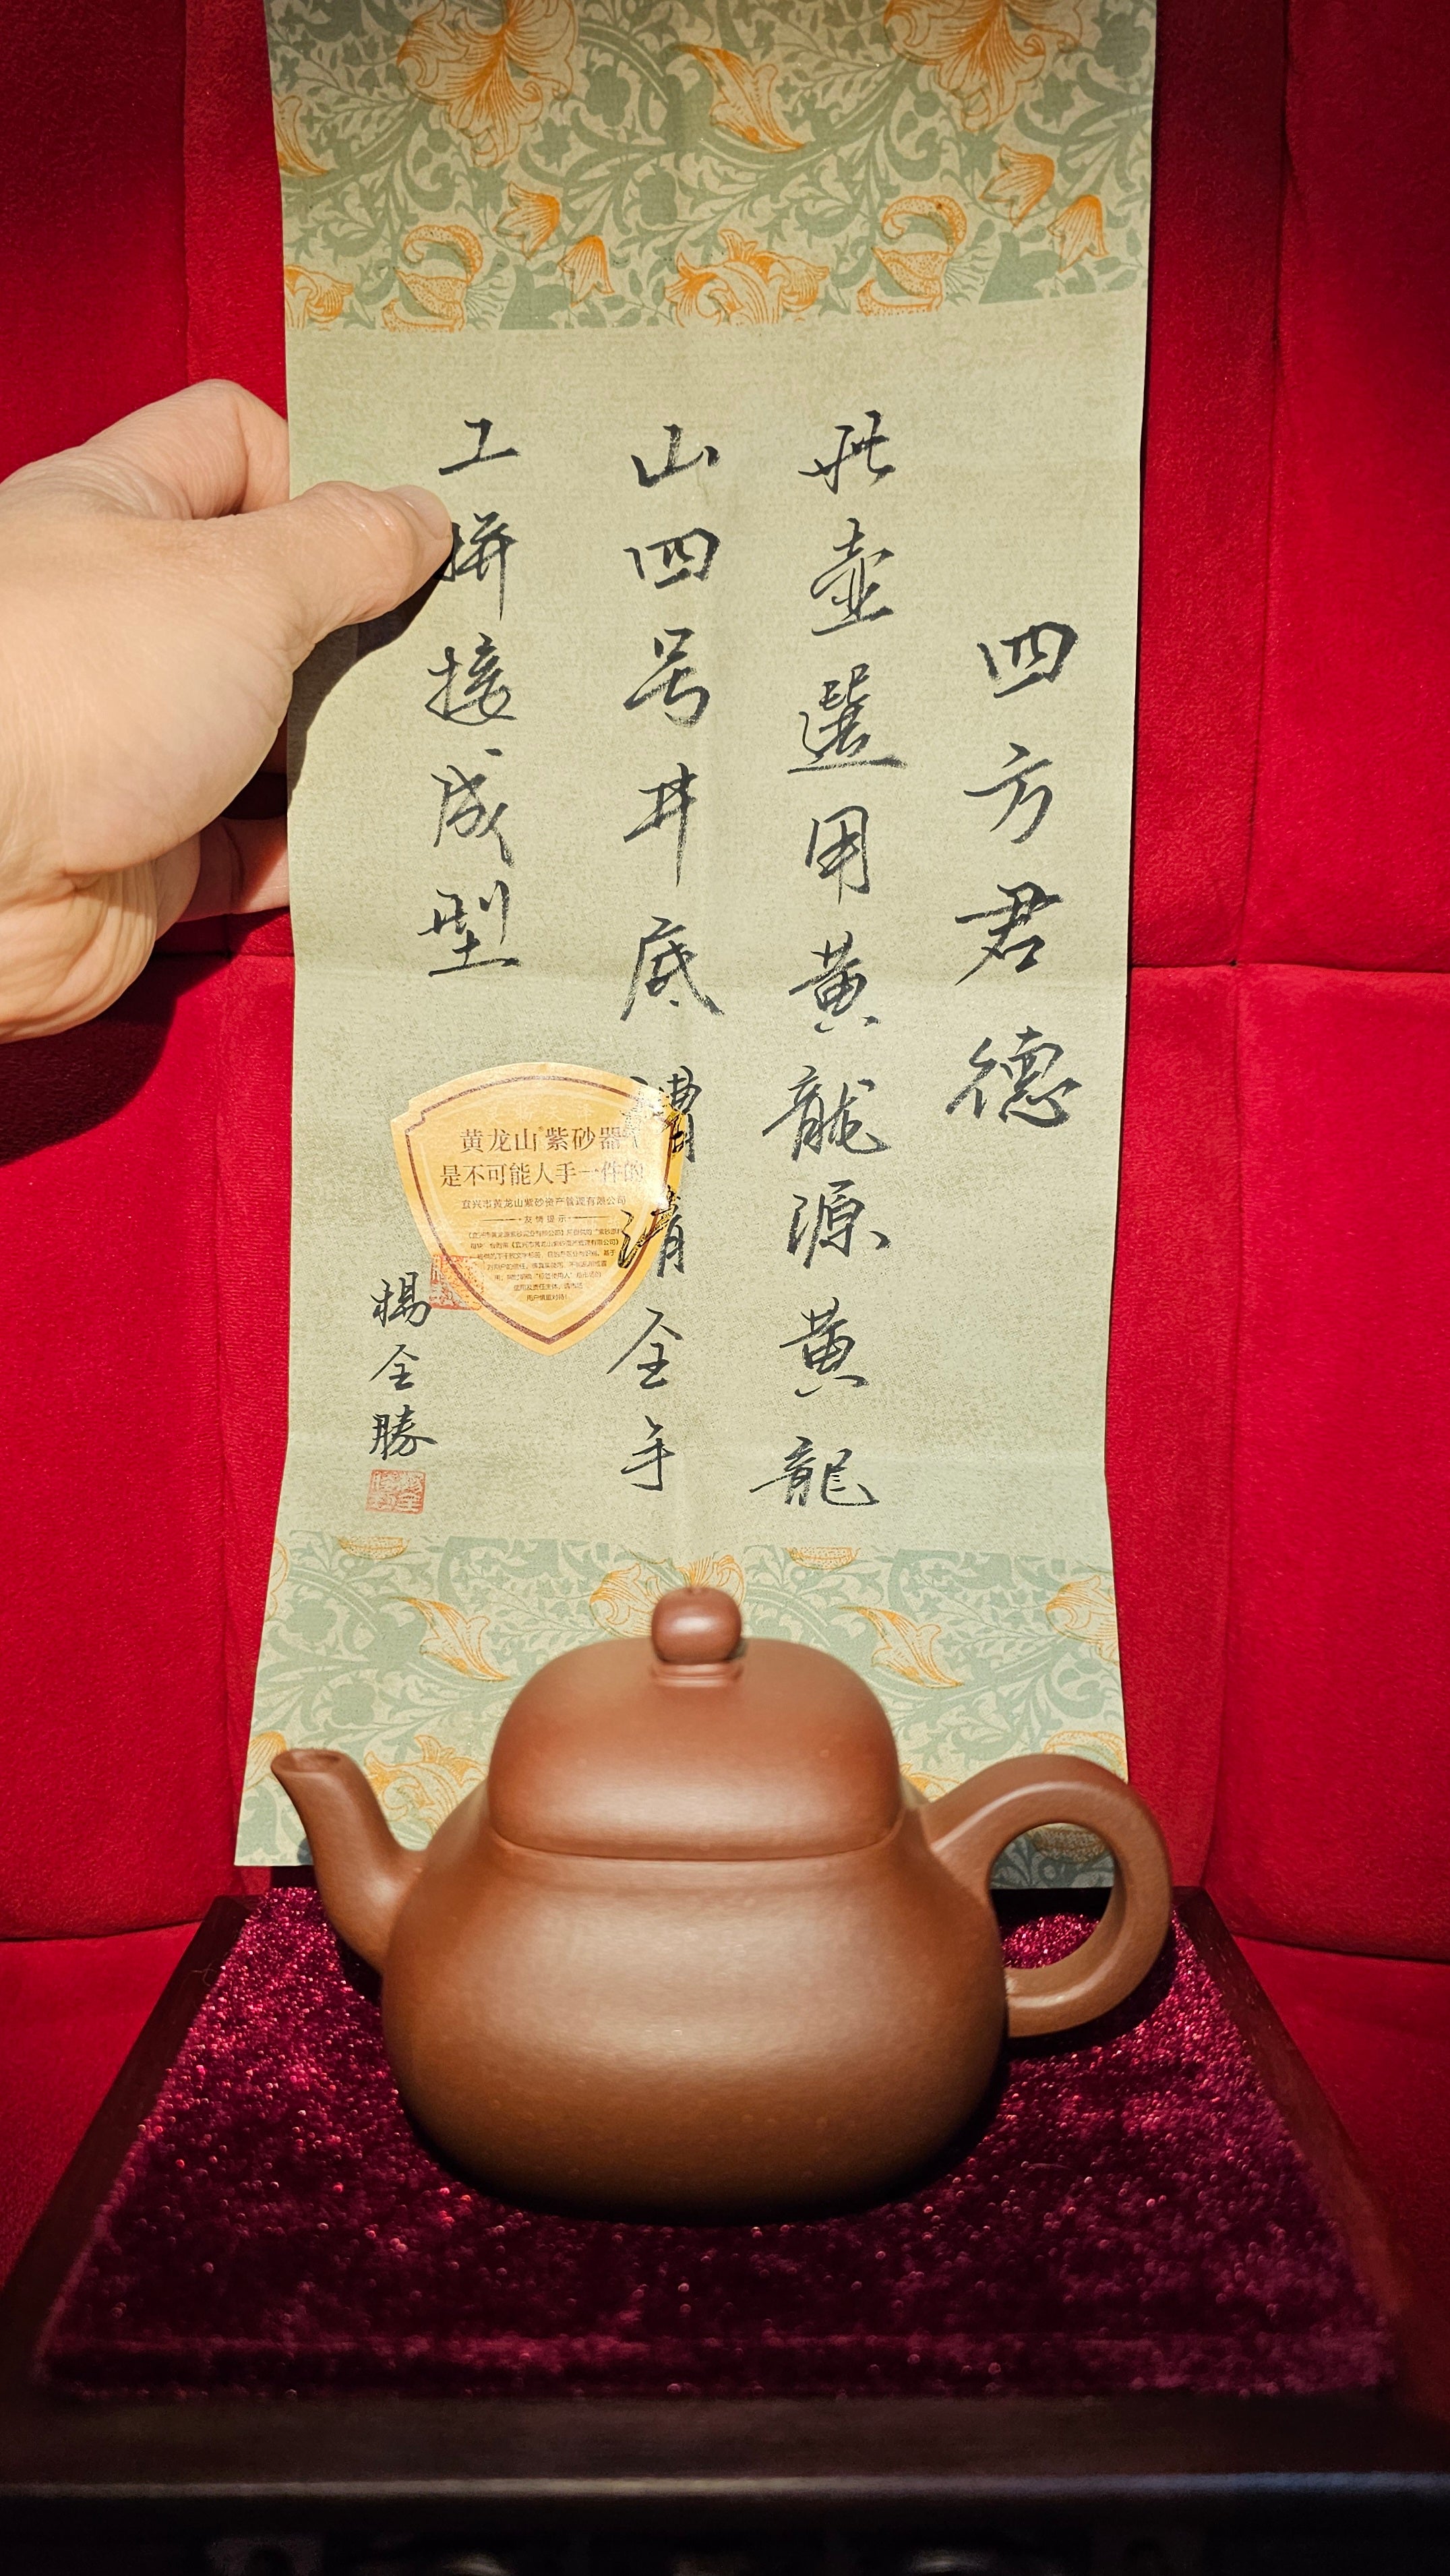 四方君德
此壺選用黄龍源黄龍
山四号井底槽清全手
工拼接成型
楊全勝
黄龙山®紫砂器
是不可能人手一件的
宜兴市黄龙山紫砂资产管理有限公司
友情提示